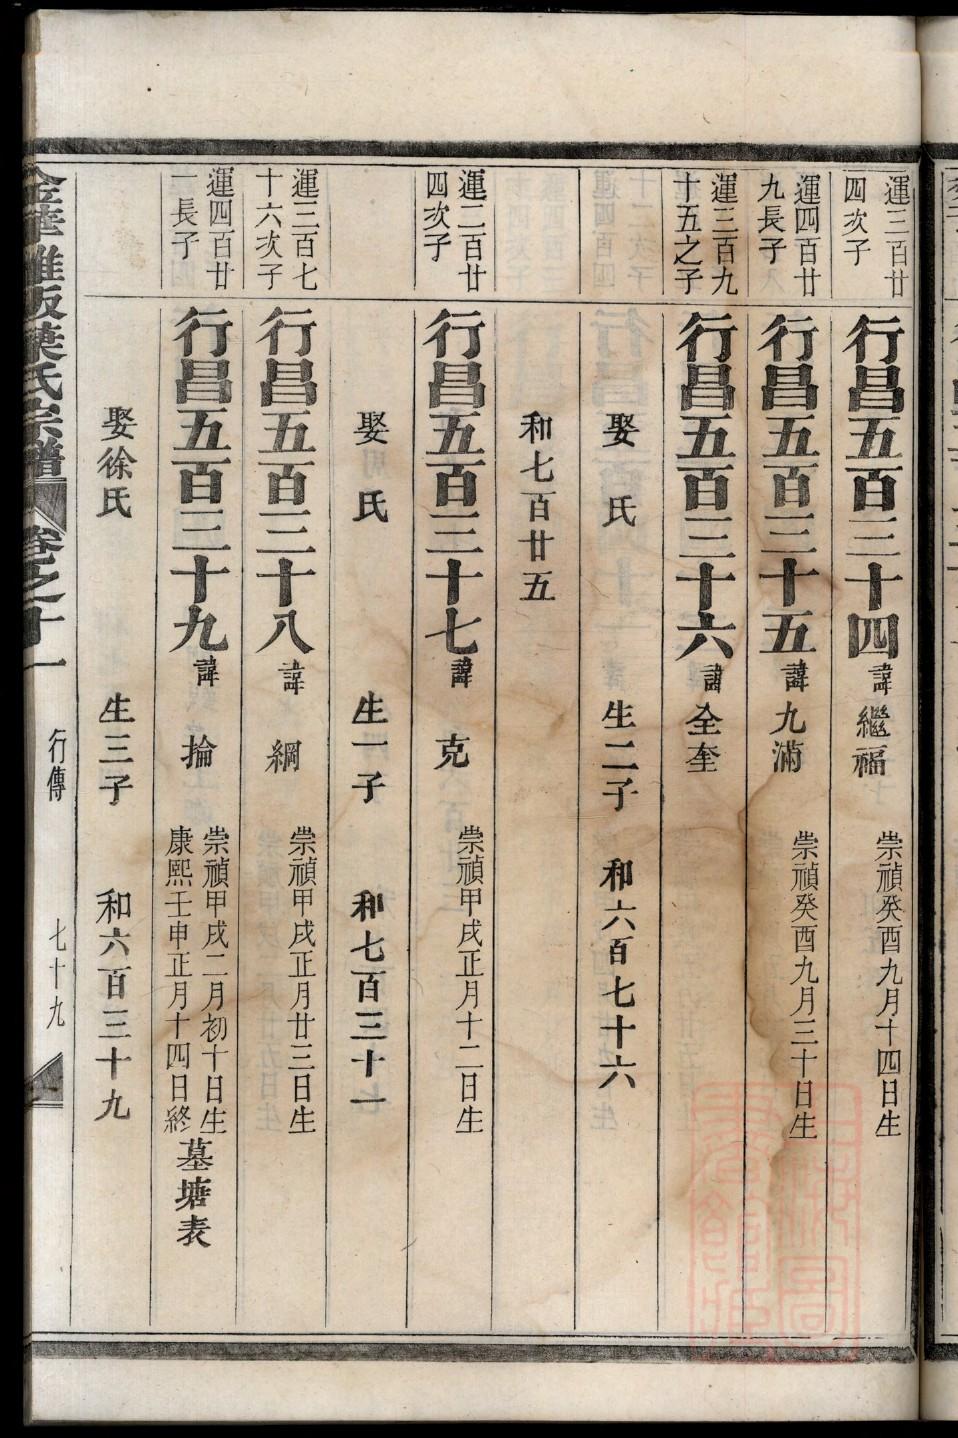 運三百廿
四次子
行昌五百三十四諱繼福
崇禎癸酉九月十四日生
運四百廿
九長子
行昌五百三十五諱九滿
崇禎癸酉九月三十日生
運三百九
十五之子
行昌五百三十六諱全奎
娶 氏 生二子 和六百七十六
和七百廿五
運二百廿
四次子
行昌五百三十七諱克
崇禎甲戌正月十二日生
娶 氏 生一子 和七百三十一
運三百七
十六次子
行昌五百三十八諱綱
崇禎甲戌正月廿三日生
運四百廿
一長子
行昌五百三十九諱掄
崇禎甲戌二月初十日生
康熙壬申正月十四日終
墓塘表
娶徐氏 生三子 和六百三十九
金華 葉氏宗譜 卷之十一 行傳 七十九